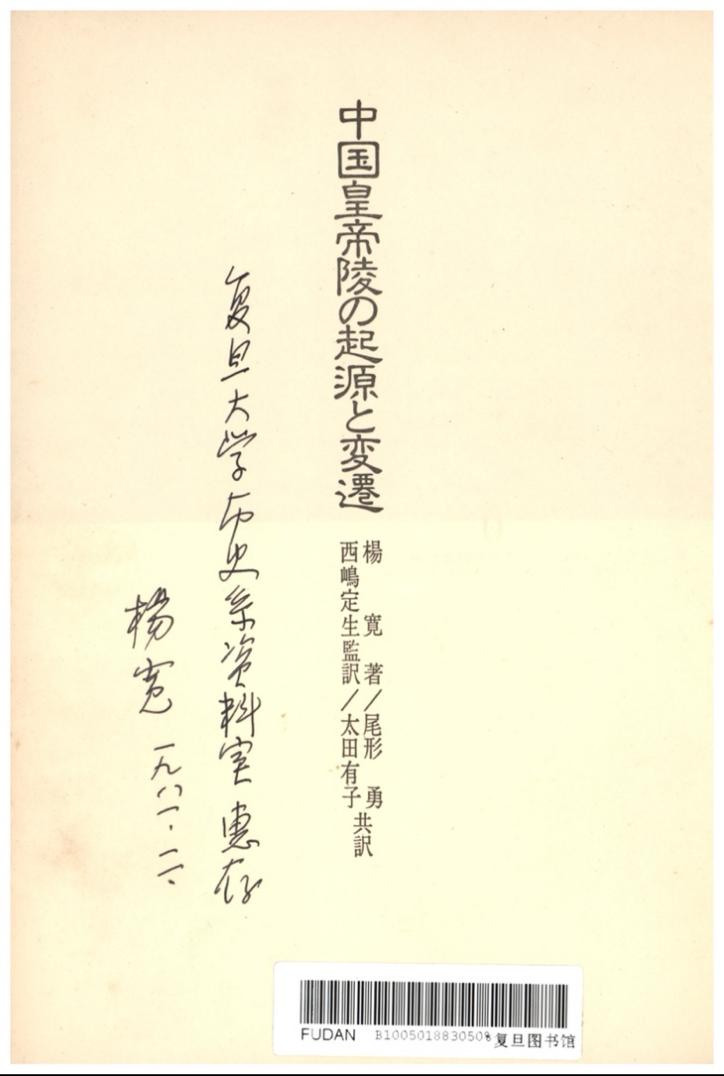 中国皇帝陵の起源と変遷
楊 寛 著/尾形 勇
西嶋定生監訳/太田有子
共訳
复旦大学历史系资料室惠存
楊寛 一九八一.二.
FUDAN B1005018830508 复旦图书馆